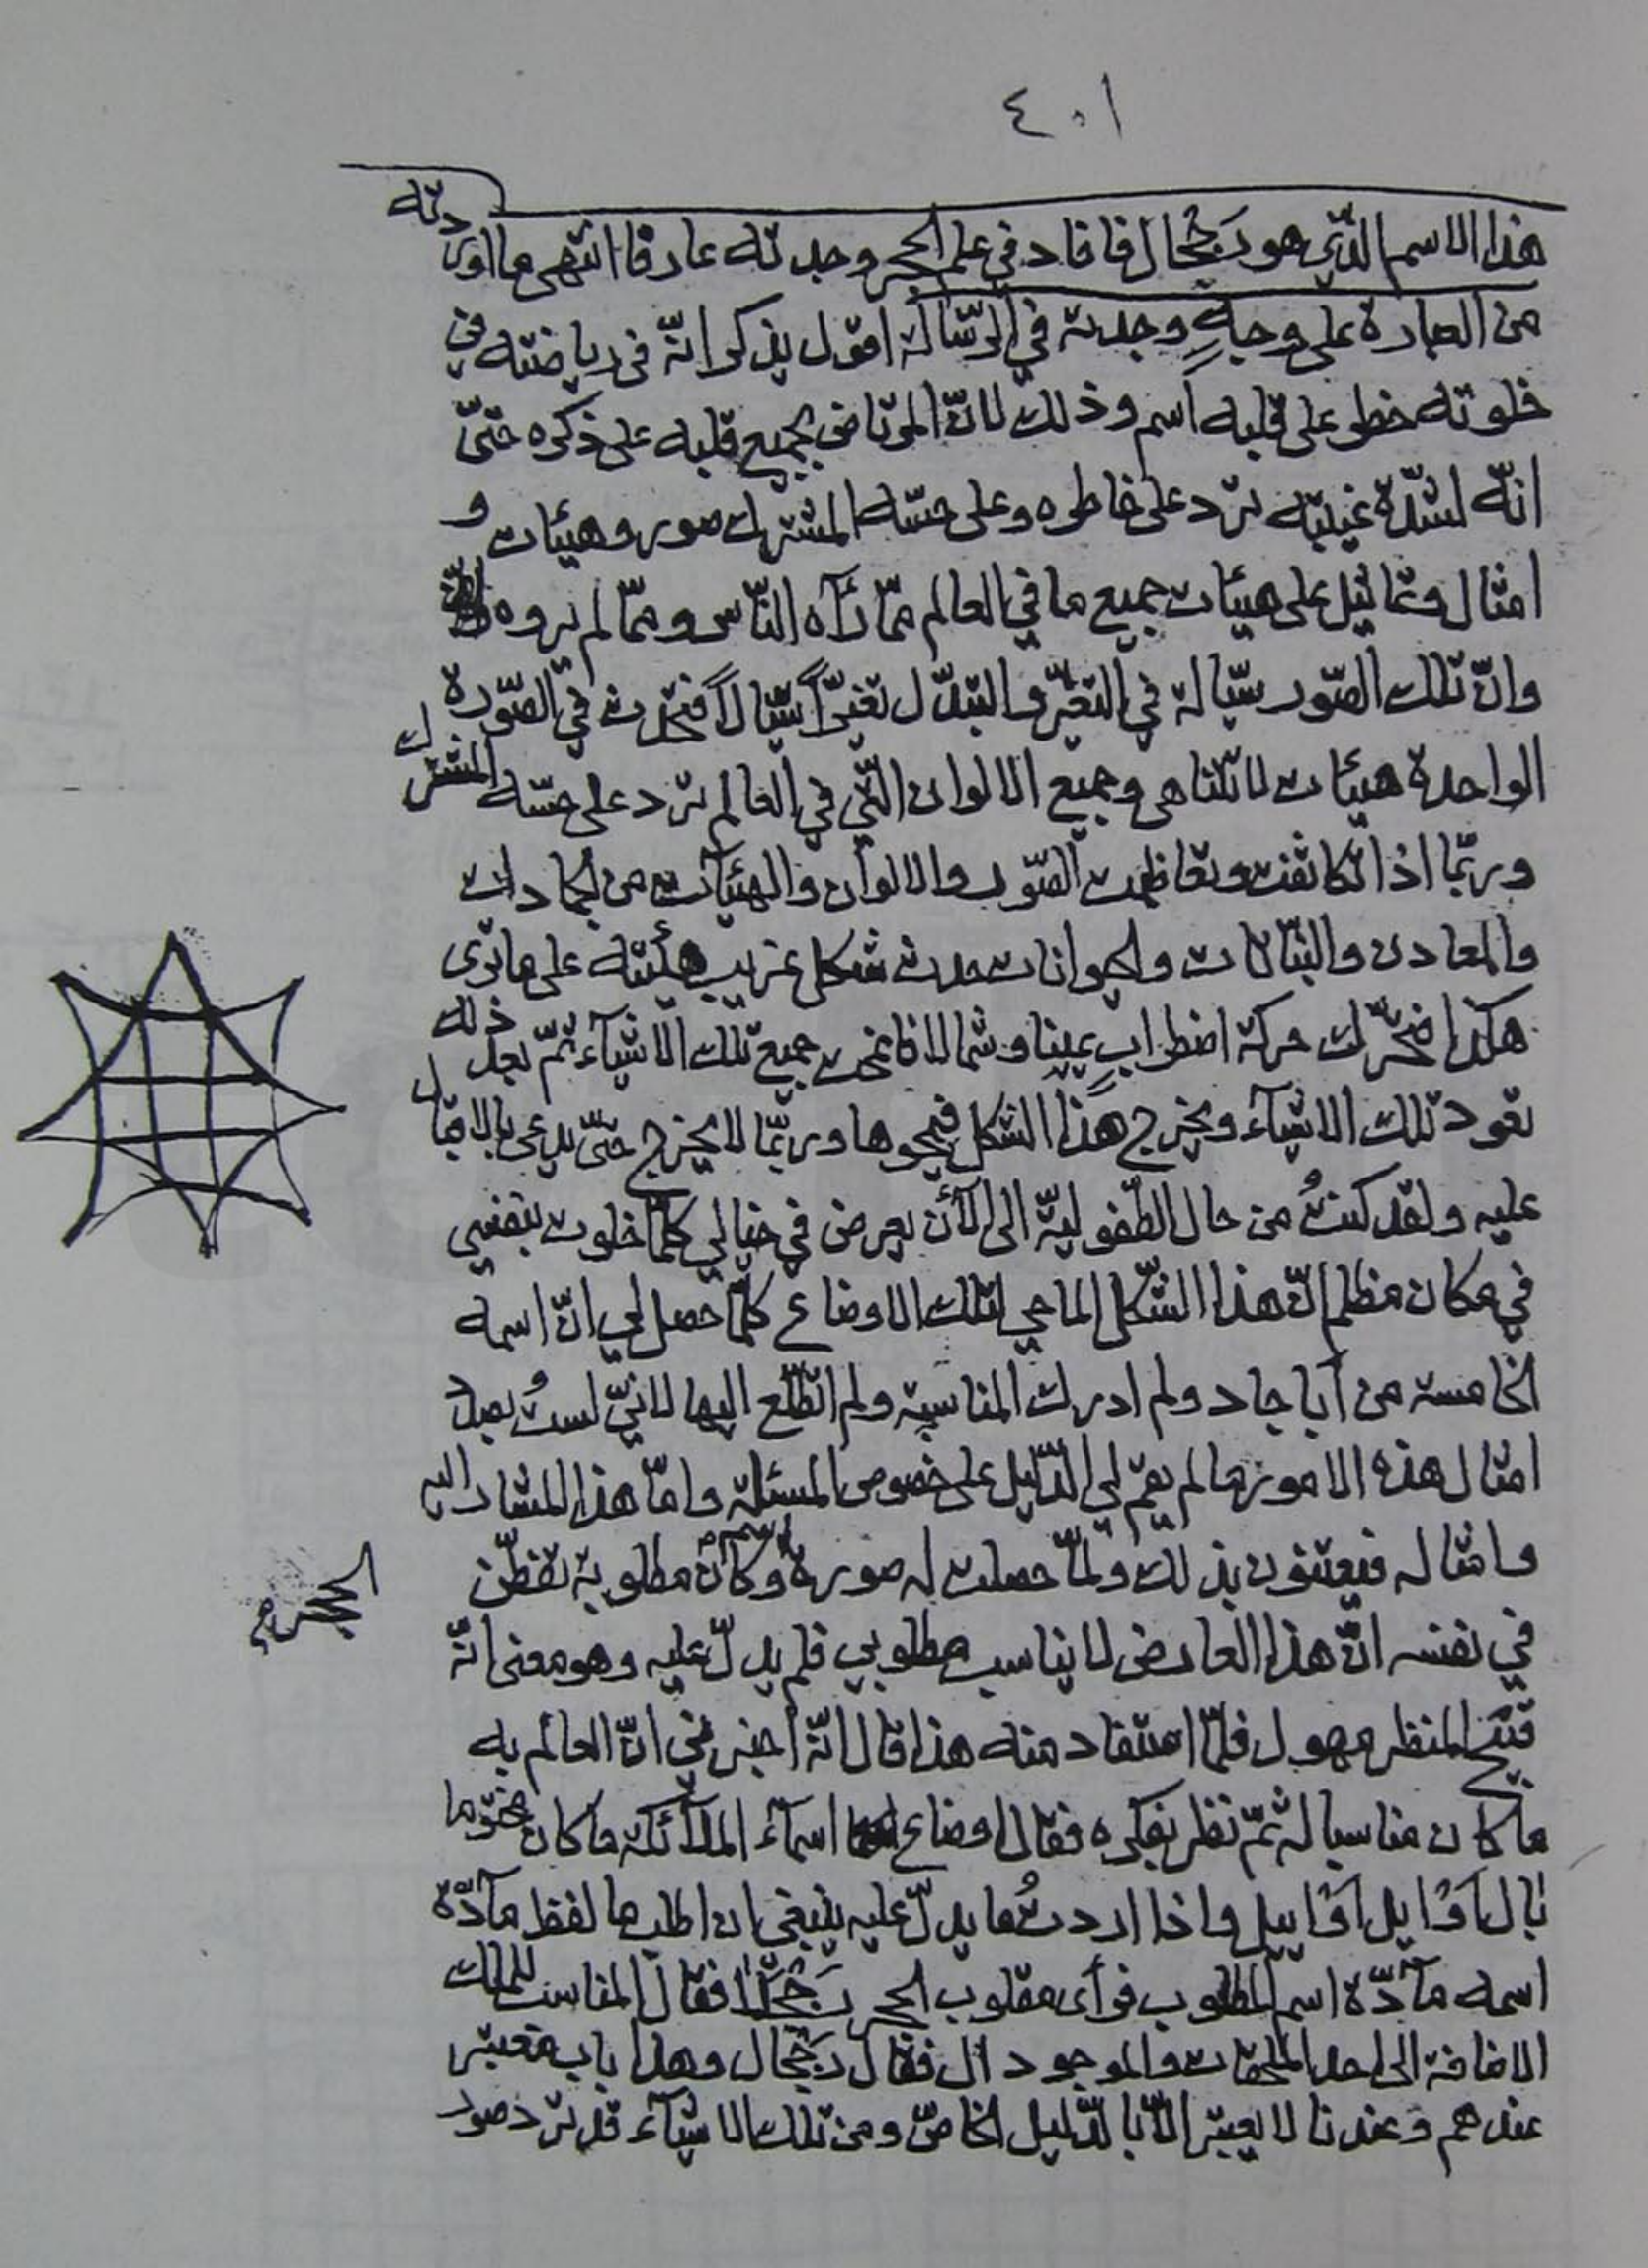 ٤٠١
هذا الاسم الذّي هو رَجْحَال فافاد في علم الحجر وجدته عارفا انتهى ما اوردته
من العبارة على وجهٍ وجدته في الرّسالة اقول يذكر انّه في رياضته في
خلوته خطر على قلبه اسم وذلك لانّ المرتاض يجمع قلبه على ذكره حتّى
انّه لشدّة غيبته ترد على خاطره وعلى حسّه المشترك صور وهيئات و
امثال وتماثيل على هيئات جميع ما في العالم ممّا رآه النّاس وممّا لم يروه
وانّ تلك الصّور سيّالة في التغيّر والتبدّل تغيّراً سيّالاً فتحدث في الصّورة
الواحدة هيئات لا تتناهى وجميع الالوان الّتي في العالم ترد على حسّه المشترك
وربّما اذا تكاثفت وتعاظمت الصّور والالوان والهيئات من الجمادات
والمعادن والنّباتات والحيوانات حدث شكل غريب هيئته على ما ترى
هكذا فتحرّك حركة اضطرابٍ يمينا وشمالا فانمحت جميع تلك الاشيآء ثمّ بعد ذلك
تعود تلك الاشيآء ويخرج هذا الشكل فيمحوها وربّما لا يخرج حتّى يدعى بالاقبال
عليه ولقد كنتُ من حال الطّفوليّة الى الآن يعرض في خيالي كلّما خلوت بنفسي
في مكان مظلم انّ هذا الشّكل الماحي لتلك الاوضاع كلّما حصل لي انّ اسمه
الخامسة من أباجاد ولم ادرك المناسبة ولم اتطّلع اليها لانّي لستُ بصدد
امثال هذه الامور ما لم يقم لي الدّليل على خصوص المسئلة وامّا هذا المشار اليه
وامثاله فيعتنون بذلك ولمّا حصلت له صورة اسم وكان مطلوبه تفطّن
الحجر م
في نفسه انّ هذا العارض لا يناسب مطلوبي فلم يدلّ عليه وهو معنى انّه
قبيح المنظر مهول فلمّا استفاد منه هذا قال انّه اخبرني انّ العالم به
ما كان مناسبا له ثمّ نظر بفكره فقال اوضاع اسمآء الملآئكة ما كان مختوما
بال اَوْ ايل اَوْ اييل واذا اردتُ ما يدلّ عليه ينبغي ان اطلب ما لفظ مآدّة
اسمه مآدّة اسم المطلوب فرأى مقلوب الحجر رَجْحَلاْ فقال المناسب للملك
الاضافة الى احد الملحقات والموجود ال فقال رَجْحَال وهذا باب معتبر
عندهم وعندنا لا يعتبر الاّ بالدّليل الخاصّ ومن تلك الاشيآء قد ترد صور